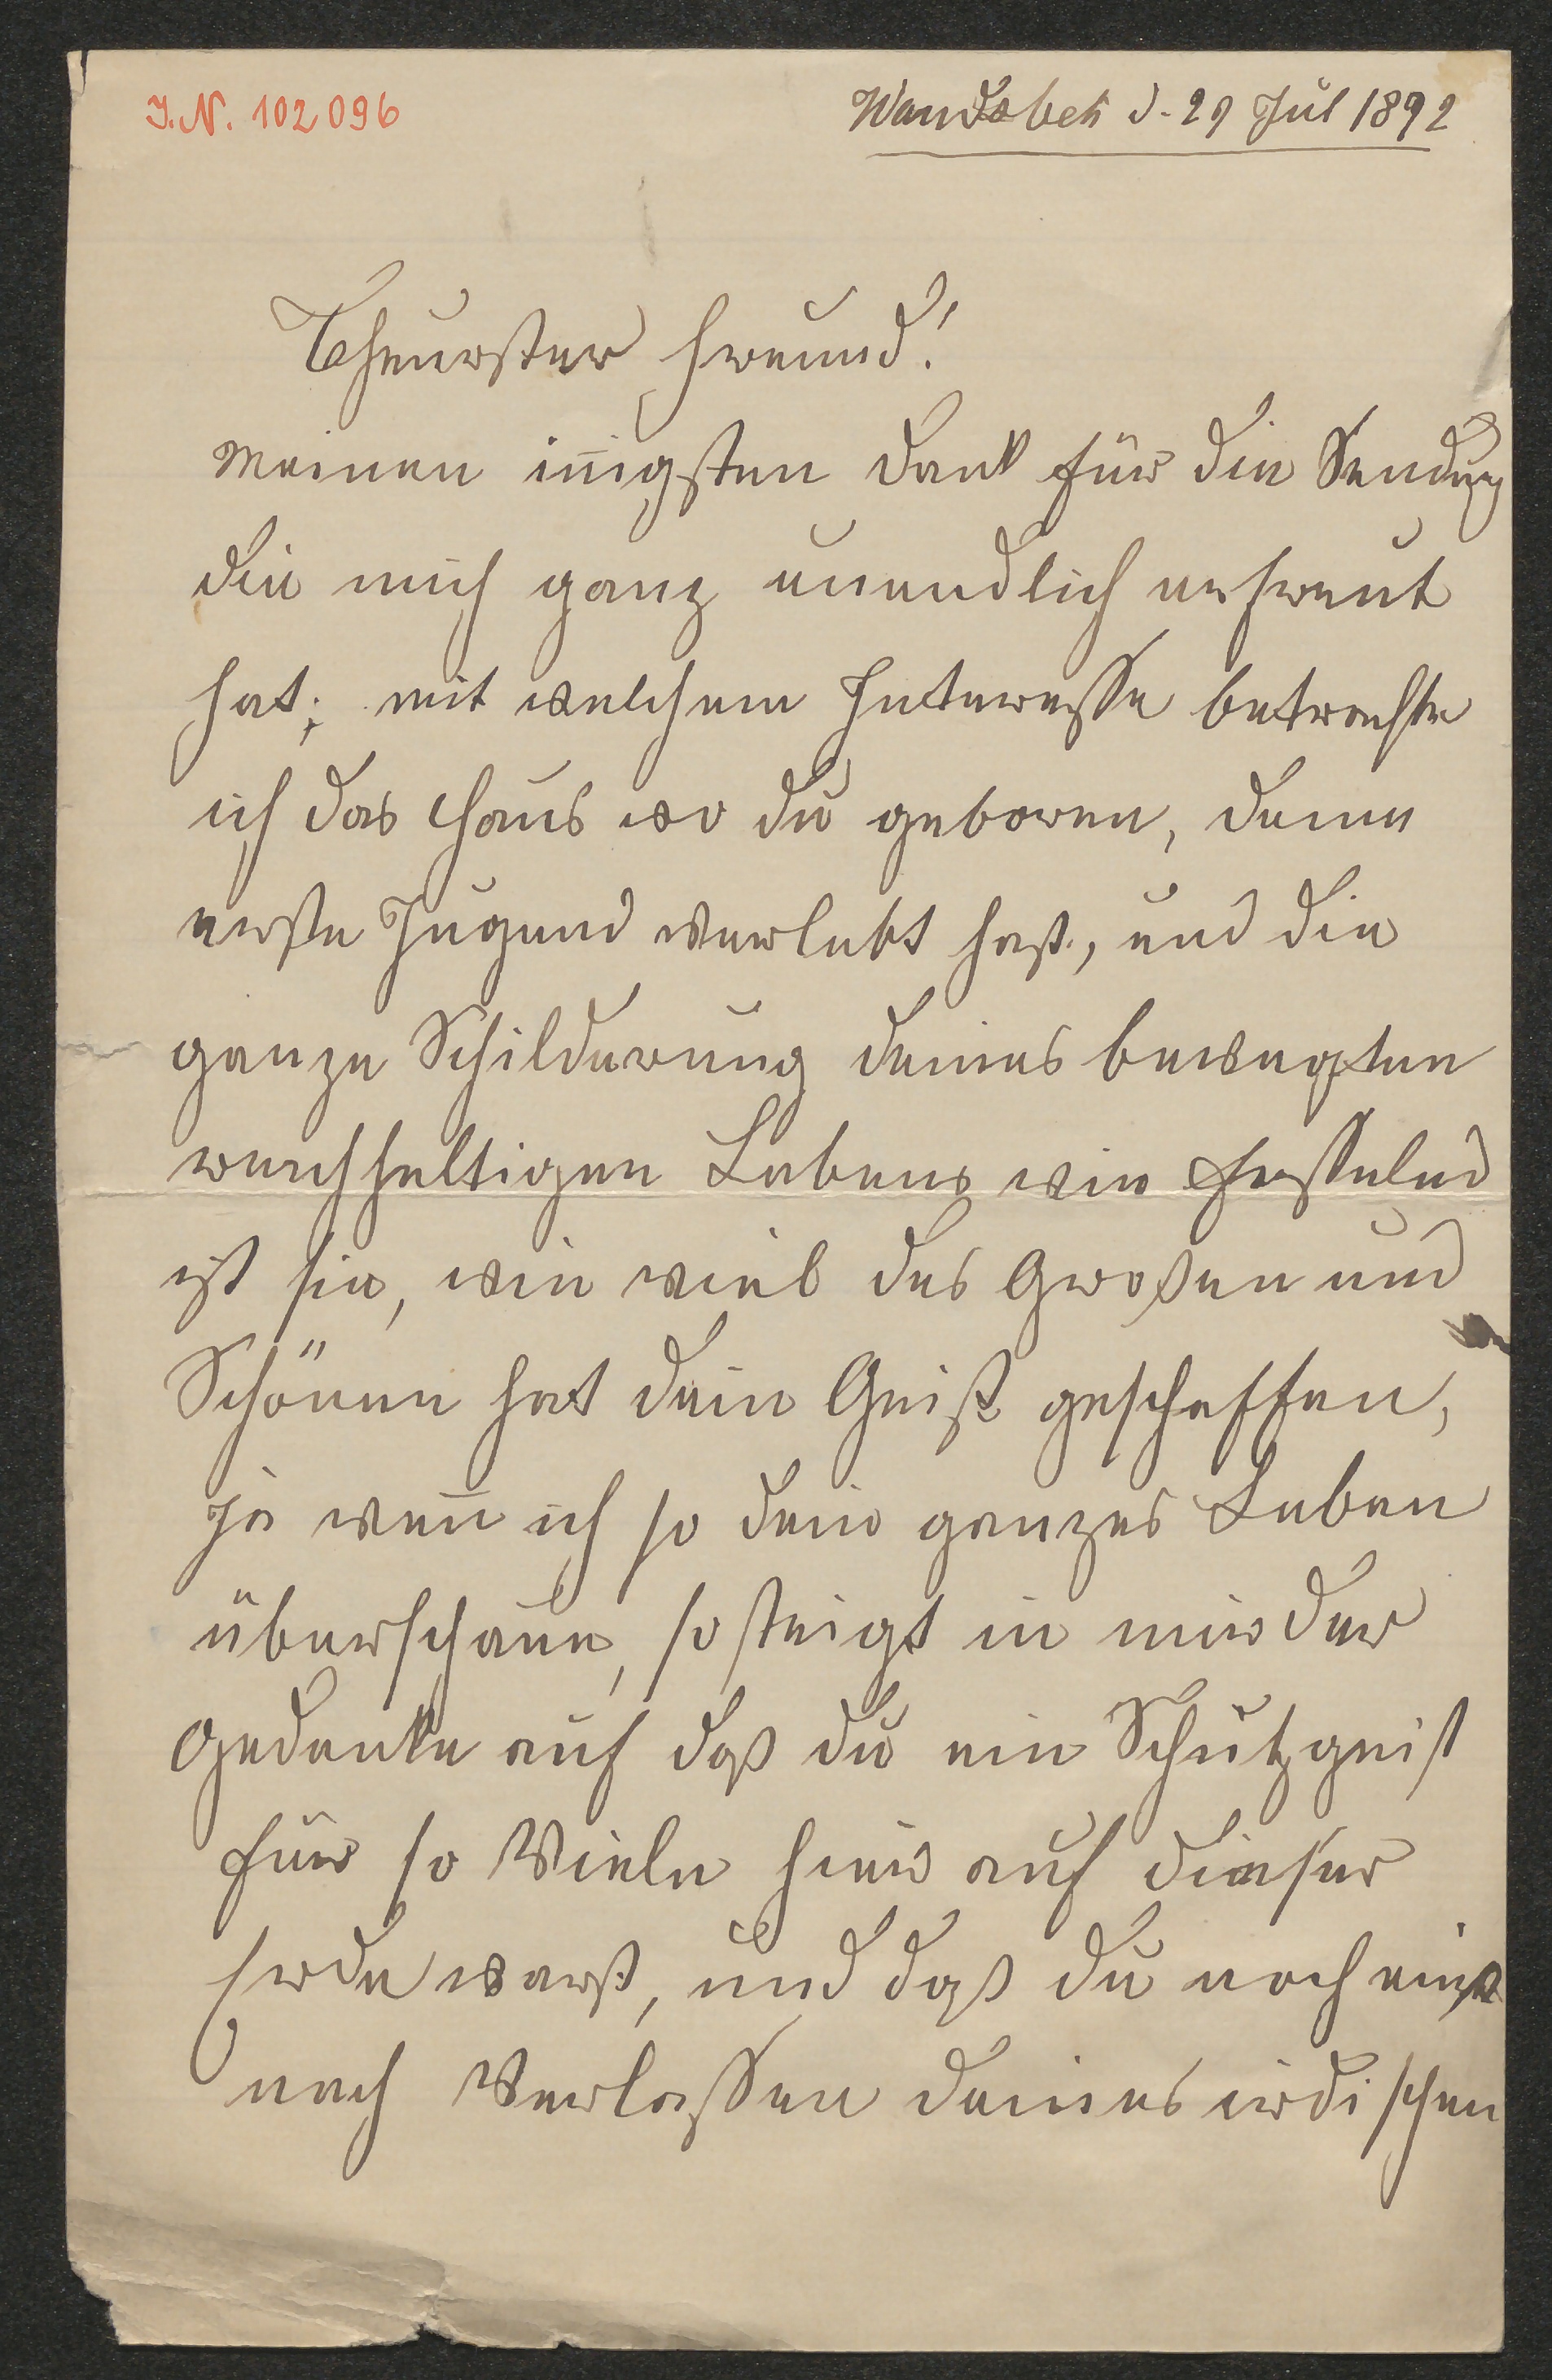 I.N. 102096
Wandsbek d. 29 Jul 1892
Theurster Freund!
Meinen iñigsten Dank für die Sendung
die mich ganz unendlich erfreut
hat; mit welchem Interesse betrachte
ich das Haus wo du geboren, deine
erste Jugend verlebt hast, und die
ganze Schilderung deines bewegten
reichhaltigen Lebens wie fesselnd
ist sie, wie viel des Großen und
Schönen hat dein Geist geschaffen,
ja weñ ich so dein ganzes Leben
überschaue, so steigt in mir der
Gedanke auf daß du ein Schutzgeist
für so Viele hier auf dieser
Erde warst, und daß du noch einst
nach Verlassen deines irdischen